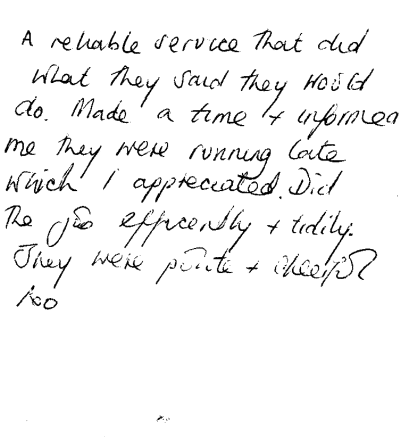 A reliable service that did
what they said they would
do. Made a time + informed
me they were running late
which I appreciated. Did
the job efficently + tidily.
They were polite + cheerful
too